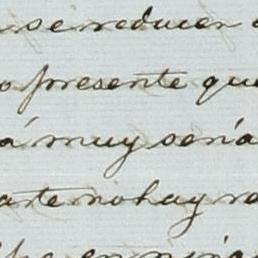 se reducen
presente que
á muy seria
arte no hay